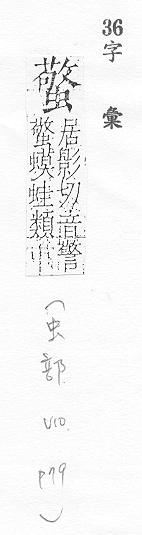 36 字彙
螫
居影切音警
螫蟆蛙類
（虫部 V10. P79）